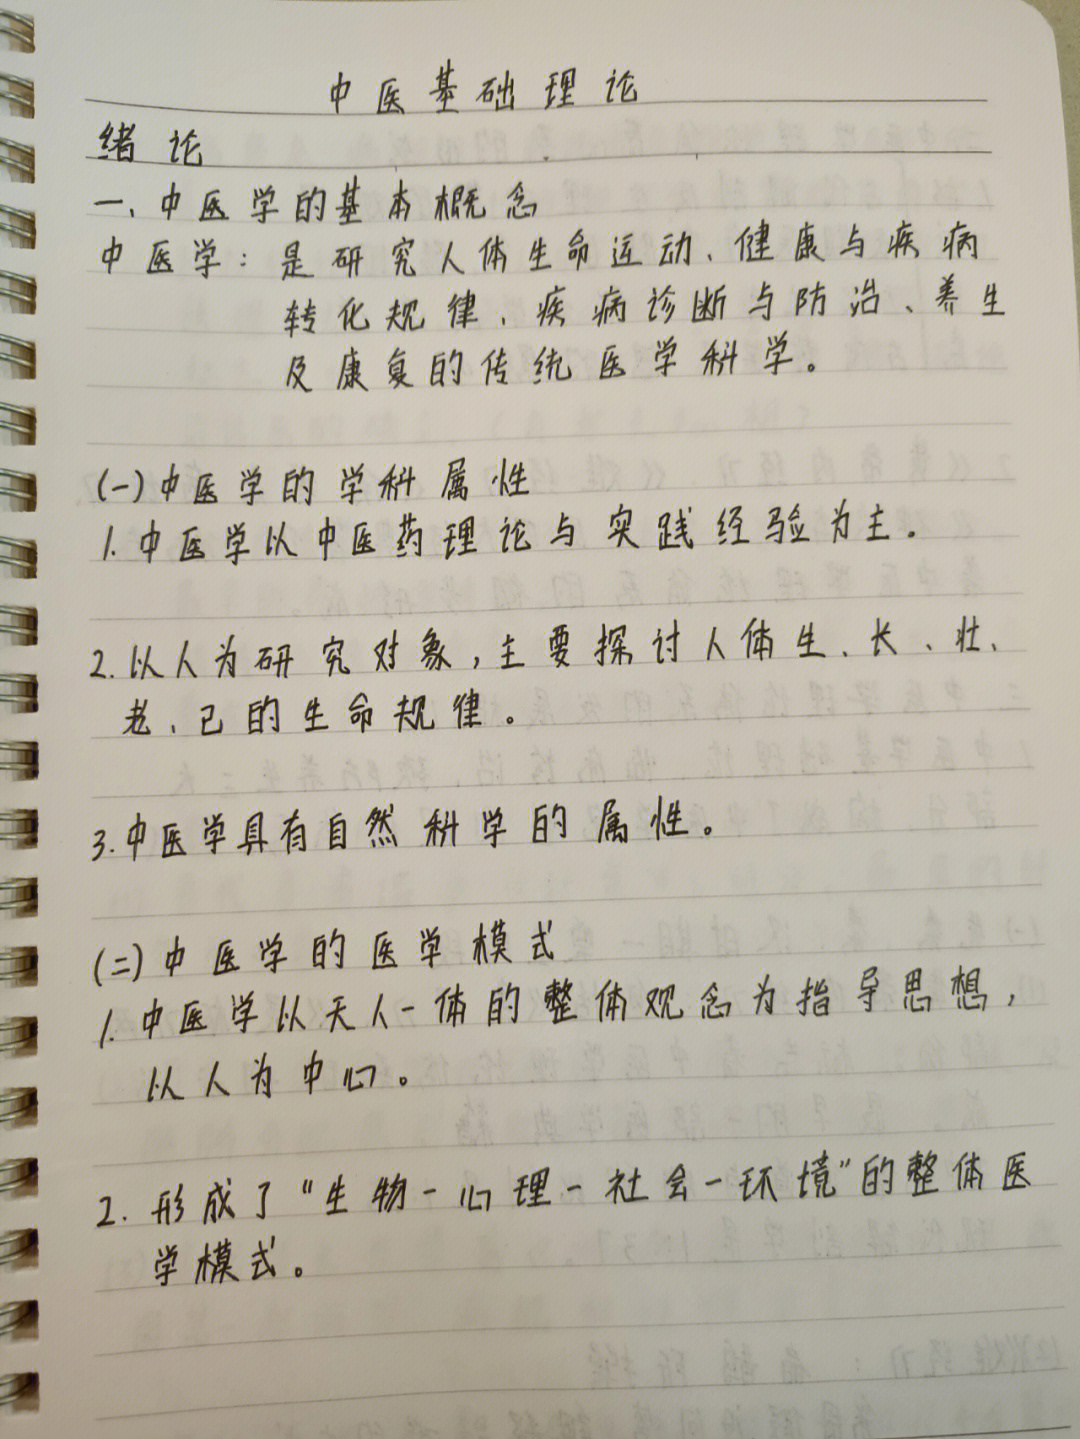 中医基础理论
绪论
一、中医学的基本概念
中医学：是研究人体生命运动、健康与疾病
转化规律、疾病诊断与防治、养生
及康复的传统医学科学。
(一)中医学的学科属性
1.中医学以中医药理论与实践经验为主。
2.以人为研究对象，主要探讨人体生、长、壮、
老、已的生命规律。
3.中医学具有自然科学的属性。
(二)中医学的医学模式
1.中医学以天人一体的整体观念为指导思想，
以人为中心。
2.形成了“生物－心理－社会－环境”的整体医
学模式。